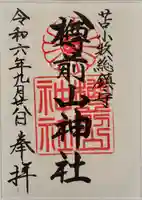 苫小牧総鎮守
樽前山神社
令和六年九月廿八日
奉拝